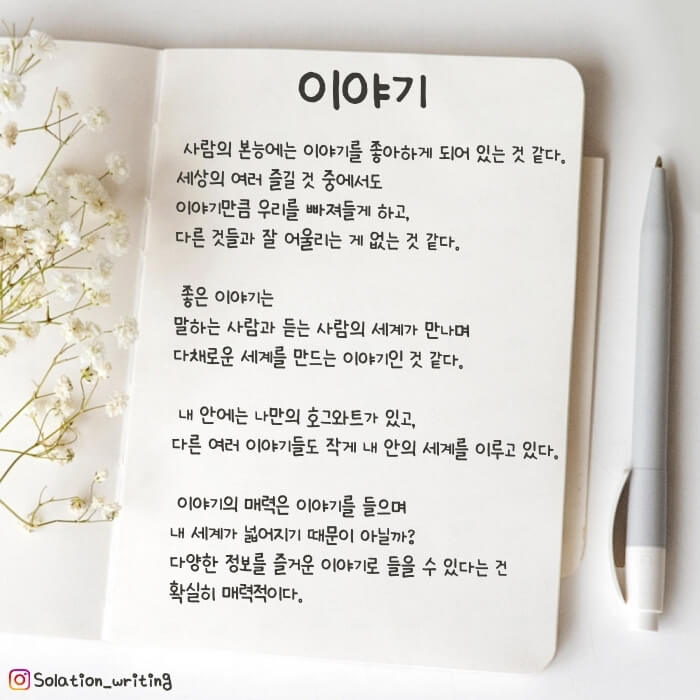 이야기
사람의 본능에는 이야기를 좋아하게 되어 있는 것 같다.
세상의 여러 즐길 것 중에서도
이야기만큼 우리를 빠져들게 하고,
다른 것들과 잘 어울리는 게 없는 것 같다.
좋은 이야기는
말하는 사람과 듣는 사람의 세계가 만나며
다채로운 세계를 만드는 이야기인 것 같다.
내 안에는 나만의 호그와트가 있고,
다른 여러 이야기들도 작게 내 안의 세계를 이루고 있다.
이야기의 매력은 이야기를 들으며
내 세계가 넓어지기 때문이 아닐까?
다양한 정보를 즐거운 이야기로 들을 수 있다는 건
확실히 매력적이다.
Solation_writing